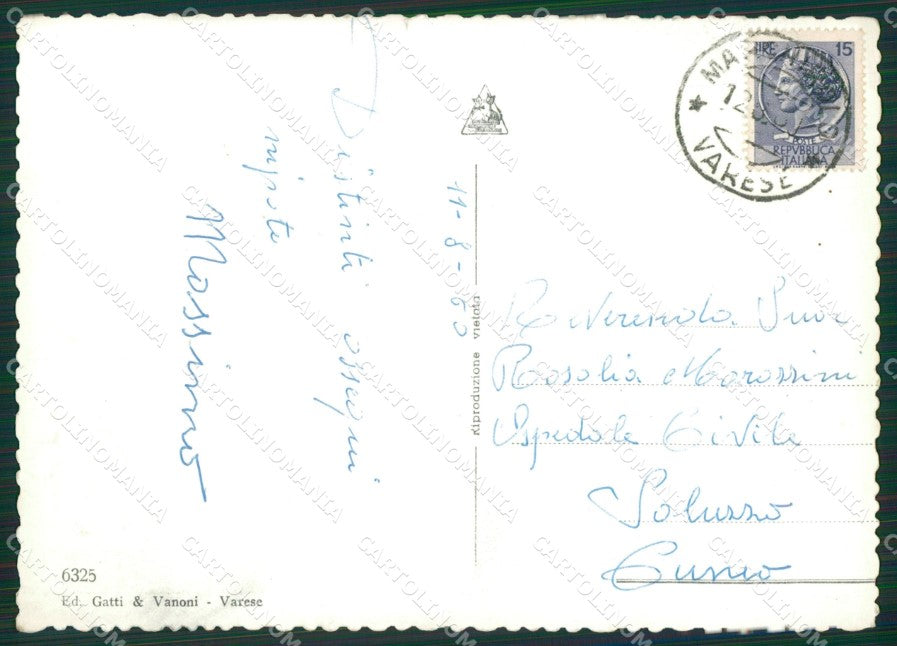 Distinti ossequi
nipote
Massimo
11-8-60
Riproduzione vietata
6325
Ed. Gatti & Vanoni - Varese
LIRE 15
POSTE
REPVBBLICA
ITALIANA
VARESE
Reverenda Suor
Rosalia Marossini
Ospedale Civile
Saluzzo
Cuneo
CARTOLINOMANIA